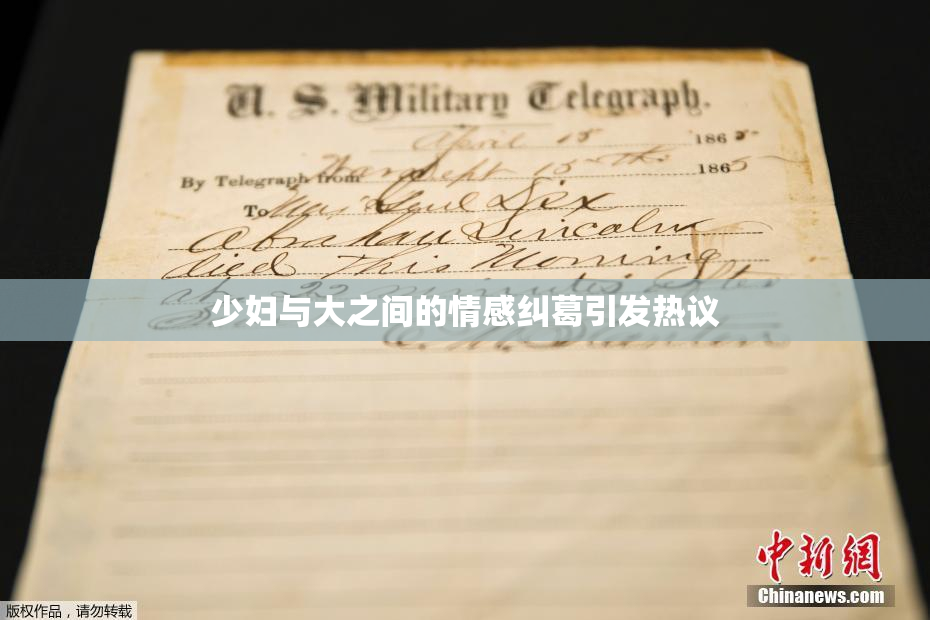 U. S. Military Telegraph.
April 15 1865
By Telegraph from War Dept 15th 1865
To Maj Genl Dix
Abraham Lincoln
died This Morning
at 22 minutes after
少妇与大之间的情感纠葛引发热议
E. M. Stanton
中新网
Chinanews.com
版权作品，请勿转载